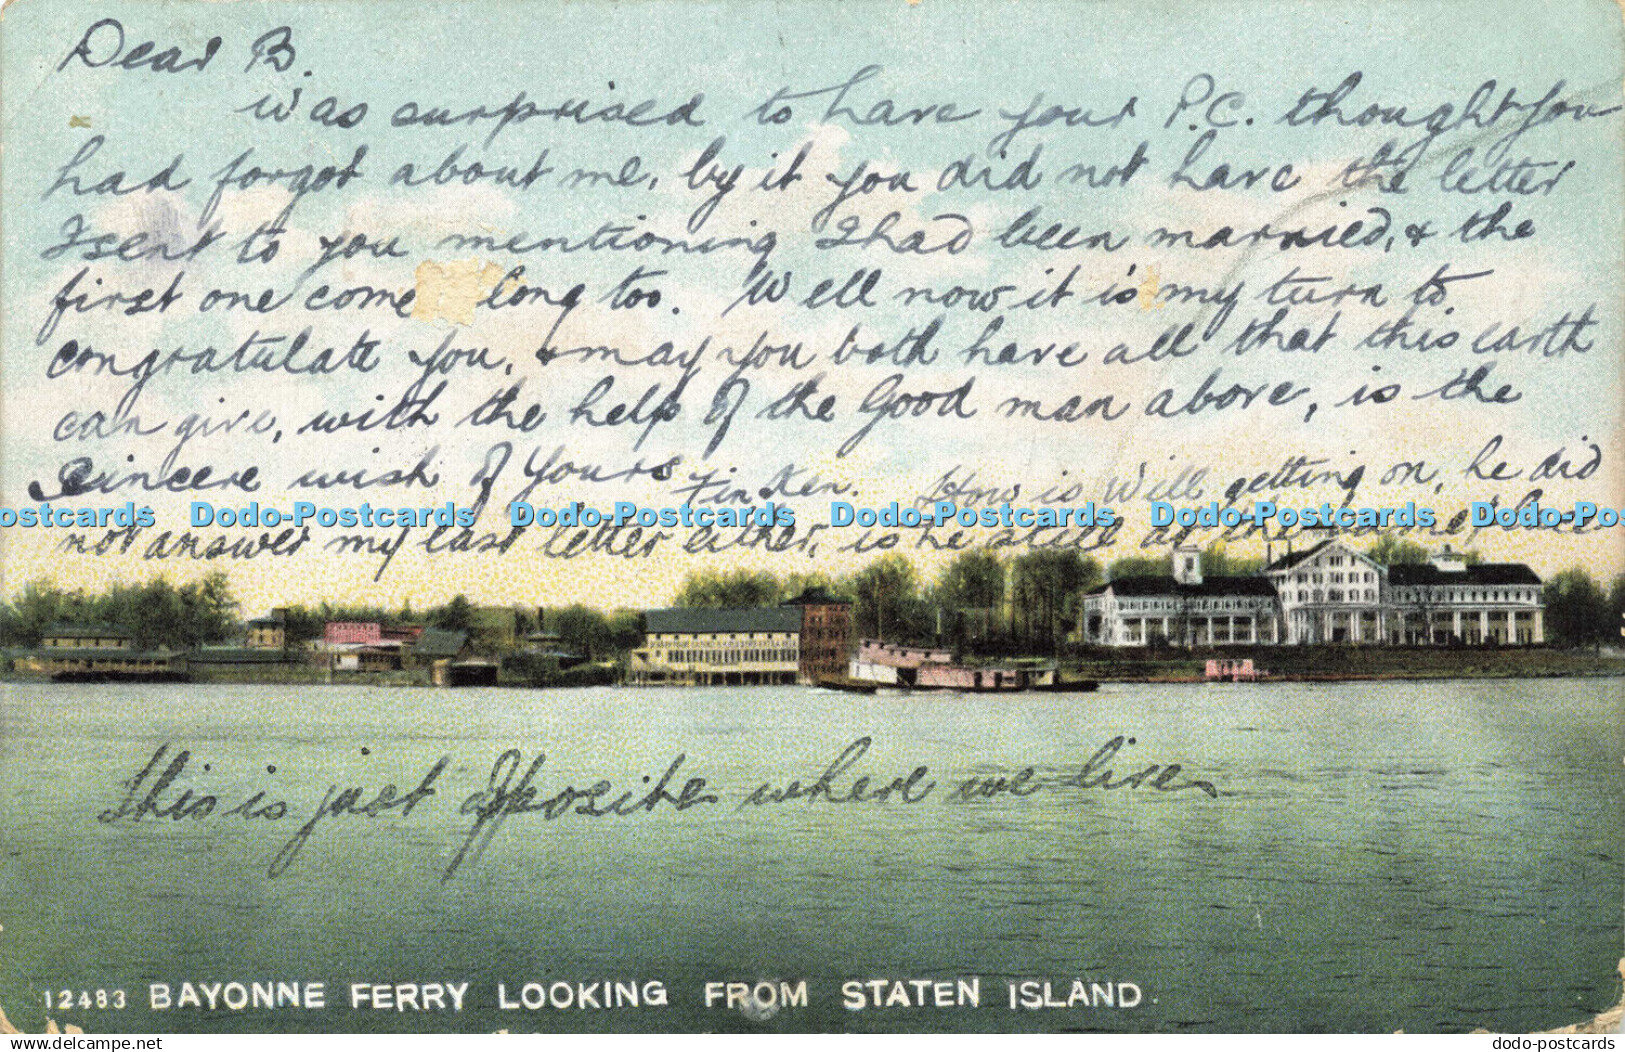 Dear B.
Was surprised to have your P.C. thought you
had forgot about me, by it you did not have the letter
I sent to you mentioning I had been married, & the
first one come long too. Well now it is my turn to
congratulate you, & may you both have all that this earth
can give, with the help of the Good man above, is the
Sincere wish of Yours Ken. How is Will getting on, he did
Dodo-Postcards Dodo-Postcards Dodo-Postcards Dodo-Postcards Dodo-Postcards Dodo-Pos
not answer my last letter either, is he still at the same
This is just opposite where we live
12483 BAYONNE FERRY LOOKING FROM STATEN ISLAND.
delcampe.net
dodo-postcards